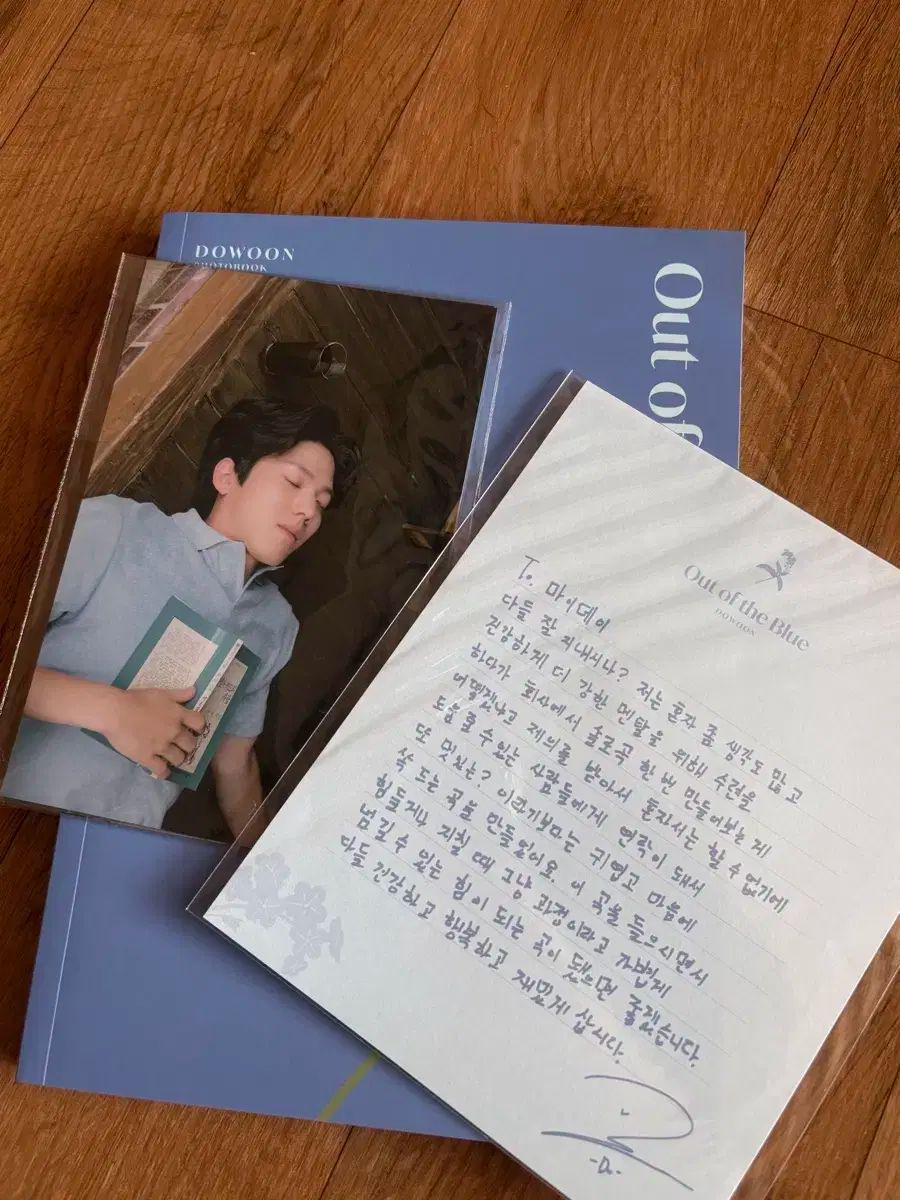 DOWOON
PHOTOBOOK
Out of
Out of the Blue
DOWOON
To. 마이데이
다들 잘 지내시나? 저는 혼자 좀 생각도 많고
건강하게 더 강한 멘탈을 위해 수련을
하다가 회사에서 솔로곡 한 번 만들어보는 게
어떻겠냐고 제의를 받아서 혼자서는 할 수 없기에
도움 줄 수 있는 사람들에게 연락이 돼서
또 멋있는? 이라기보다는 귀엽고 마음에
쏙 드는 곡을 만들었어요. 이 곡을 들으시면서
힘드시거나 지칠 때 그냥 과정이라고 가볍게
넘길 수 있는 힘이 되는 곡이 됐으면 좋겠습니다.
다들 건강하고 행복하고 재밌게 삽시다.